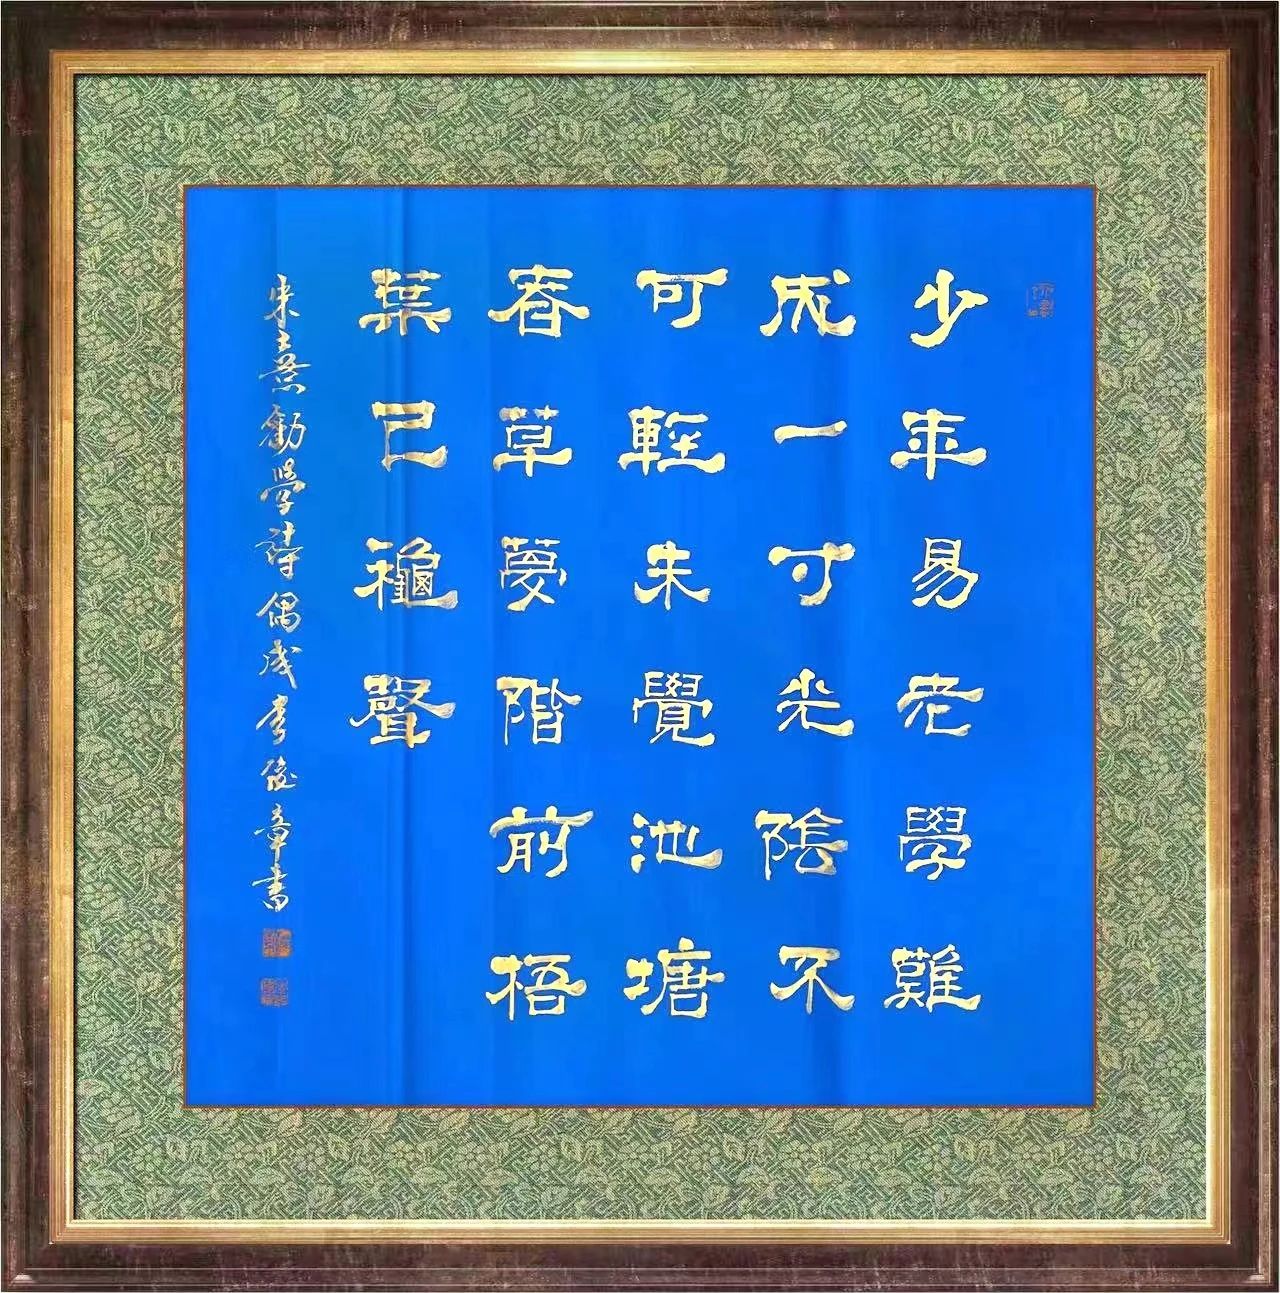 少年易老學難
成一寸光陰不
可輕未覺池塘
春草夢階前梧
葉已穐聲
朱熹勸學詩偶成李俊章書